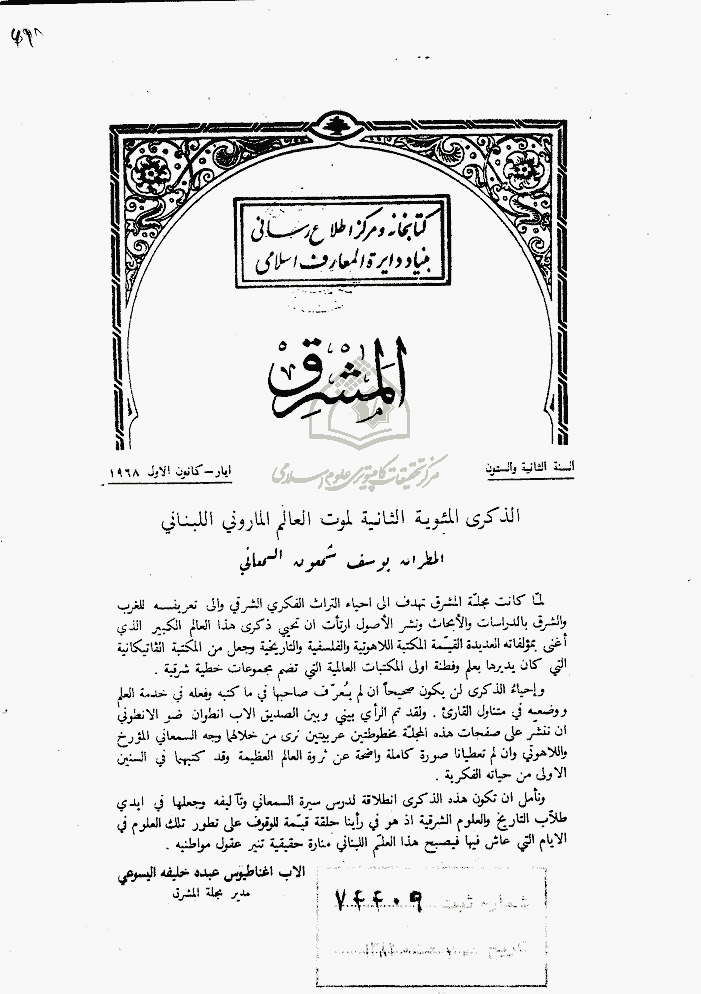 ۶۹۸
كتابخانه و مركز اطلاع رسانى
بنياد دايرة المعارف اسلامى
المَشْرِقْ
مركز تحقيقات كامپيوترى علوم اسلامى
السنة الثانية والستون
ايار – كانون الاول ١٩٦٨
الذكرى المئوية الثانية لموت العالم الماروني اللبناني
المطران يوسف شمعون السمعاني
لمّا كانت مجلّة المشرق تهدف الى احياء التراث الفكري الشرقي والى تعريفه للغرب
والشرق بالدراسات والأبحاث ونشر الأصول ارتأت ان تحيي ذكرى هذا العالم الكبير الذي
أغنى بمؤلفاته العديدة القيّمة المكتبة اللاهوتية والفلسفية والتاريخية وجعل من المكتبة الڤاتيكانية
التي كان يديرها بعلم وفطنة اولى المكتبات العالمية التي تضم مجموعات خطية شرقية .
وإحياءُ الذكرى لن يكون صحيحاً ان لم يُعرّف صاحبها في ما كتبه وفعله في خدمة العلم
ووضعِه في متناول القارئ . ولقد تم الرأي بيني وبين الصديق الاب انطوان ضو الانطوني
ان ننشر على صفحات هذه المجلة مخطوطتين عربيتين نرى من خلالهما وجه السمعاني المؤرخ
واللاهوتي وان لم تعطيانا صورة كاملة واضحة عن ثروة العالم العظيمة وقد كتبهما في السنين
الاولى من حياته الفكرية .
ونأمل ان تكون هذه الذكرى انطلاقة لدرس سيرة السمعاني وتآليفه وجعلها في ايدي
طلاّب التاريخ والعلوم الشرقية اذ هو في رأينا حلقة قيّمة للوقوف على تطور تلك العلوم في
الايام التي عاش فيها فيصبح هذا العلَم اللبناني منارة حقيقية تنير عقول مواطنيه .
الاب اغناطيوس عبده خليفه اليسوعي
مدير مجلة المشرق
۷۴۴۰۹